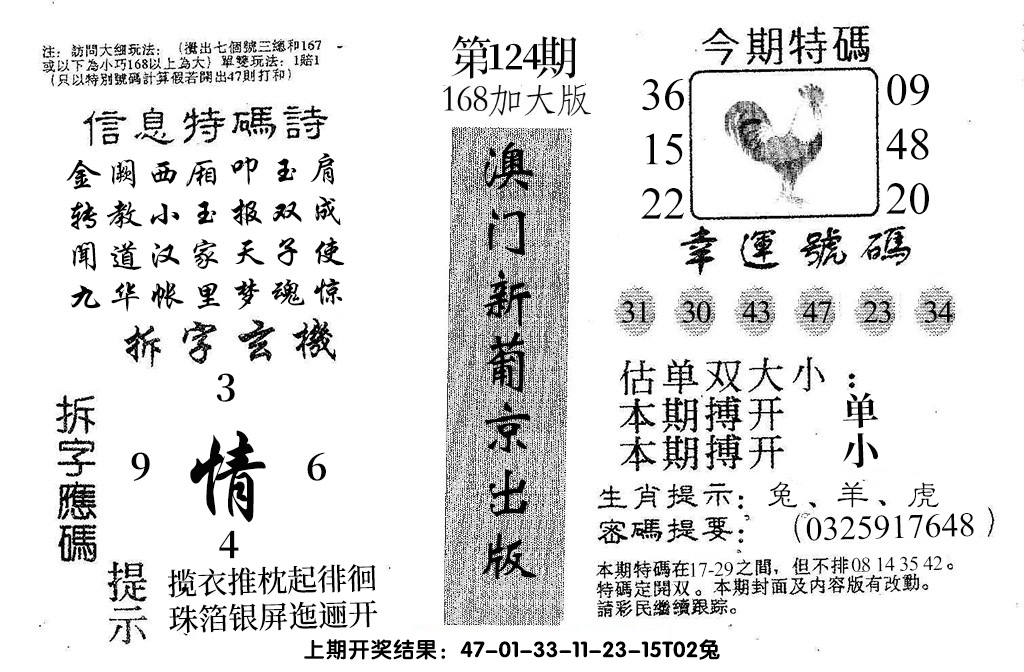 注：訪問大细玩法：（攪出七個號三總和167
或以下為小巧168以上為大）單雙玩法：1賠1
（只以特別號碼計算假若開出47則打和）
信息特碼詩
金阙西厢叩玉肩
转教小玉报双成
闻道汉家天子使
九华帐里梦魂惊
拆字玄機
拆字應碼
3
9 情 6
4
提示
揽衣推枕起徘徊
珠箔银屏迤逦开
第124期
168加大版
澳门新葡京出版
今期特碼
36 09
15 48
22 20
幸運號碼
31 30 43 47 23 34
估单双大小：
本期搏开 单
本期搏开 小
生肖提示：兔、羊、虎
密碼提要：（0325917648）
本期特碼在17-29之間，但不排08 14 35 42。
特碼定開双。本期封面及内容版有改動。
請彩民繼續跟踪。
上期开奖结果：47-01-33-11-23-15T02兔